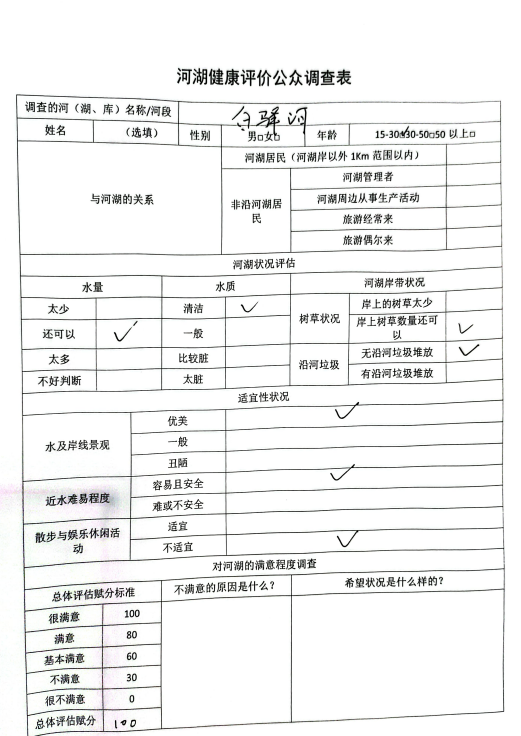 河湖健康评价公众调查表
调查的河（湖、库）名称/河段 白驿河
姓名 （选填） 性别 男□女□ 年龄 15-30□30-50□50 以上□
与河湖的关系
河湖居民（河湖岸以外 1Km 范围以内）
非沿河湖居民
河湖管理者
河湖周边从事生产活动
旅游经常来
旅游偶尔来
河湖状况评估
水量 水质 河湖岸带状况
太少 清洁 ✓ 树草状况 岸上的树草太少
还可以 ✓ 一般 岸上树草数量还可以 ✓
太多 比较脏 沿河垃圾 无沿河垃圾堆放 ✓
不好判断 太脏 有沿河垃圾堆放
适宜性状况
水及岸线景观 优美 ✓
一般
丑陋
近水难易程度 容易且安全 ✓
难或不安全
散步与娱乐休闲活动 适宜
不适宜 ✓
对河湖的满意程度调查
总体评估赋分标准 不满意的原因是什么？ 希望状况是什么样的？
很满意 100
满意 80
基本满意 60
不满意 30
很不满意 0
总体评估赋分 100